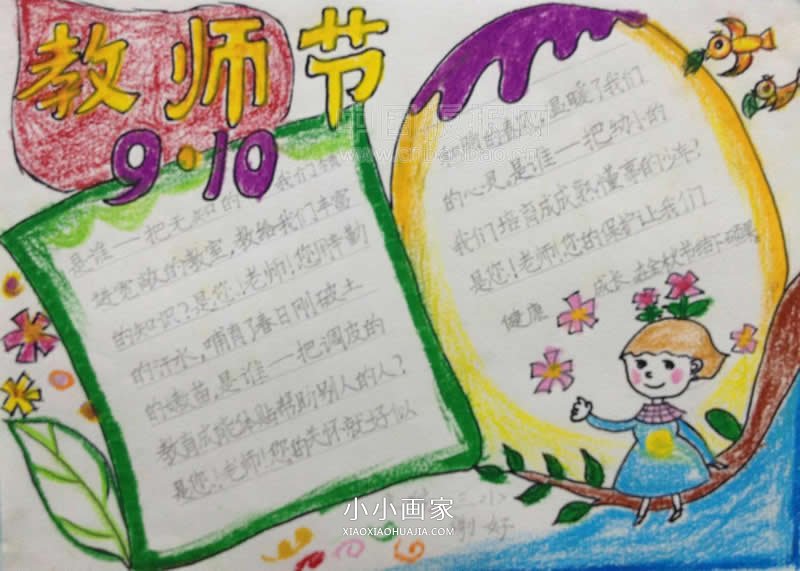 教师节
9·10
是谁——把无知的 我们领
进宽敞的教室,教给我们丰富
的知识?是您!老师!您用辛勤
的汗水,哺育了春日刚破土
的嫩苗,是谁——把调皮的
教育成能体贴帮助别人的人?
是您!老师!您的关怀就好似
和煦的春风,温暖了我们
的心灵,是谁——把幼小的
我们培育成成熟懂事的少年?
是您!老师!您的保护让我们
健康 成长,在金秋节结下硕果。
小小画家
XIAOXIAOHUAJIA.COM